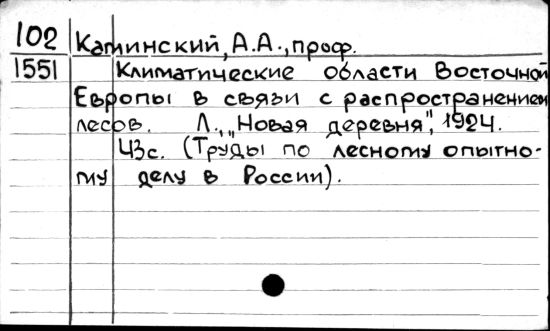 102 Каминский, А.А., проф.
1551 Климатические области Восточной
Европы в связи с распространением
лесов. Л., „Новая деревня", 1924.
43с. (Труды по лесному опытно-
му делу в России).